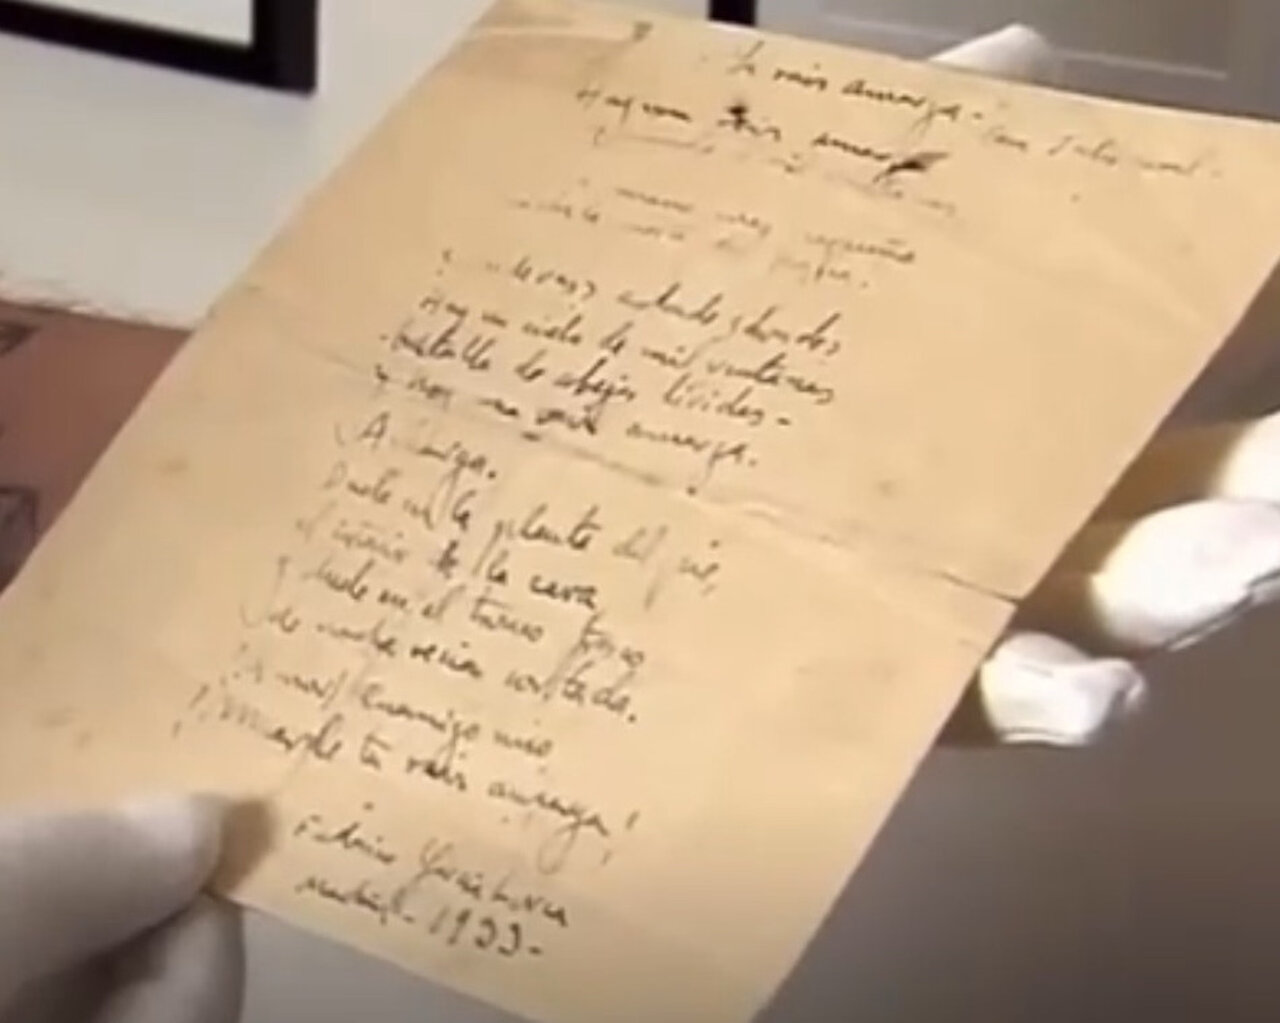 La raiz amarga -
Hay una raiz amarga
mano mas pequeña
adonde ¿donde?
Hay un cielo de mil ventanas
-batalla de abejas lívidas-
y hay una raiz amarga.
Amarga.
Duele en la planta del pie,
el interior de la cara
y duele en el tronco fresco
de noche recien cortada.
¡Amor, enemigo mio
¡Muerde tu raiz amarga!
Federico García Lorca
Madrid - 1933 -